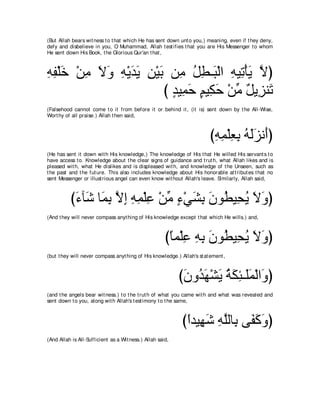 (But Allah bears witness to that which He has sent down unto you,) meaning, even if they deny,
defy and disbelieve in you, O Muhammad, Allah testifies that you are His Messenger to whom
He sent down His Book, the Glorious Qur'an that,
(لاَّ يَأْتِيهِ الْبَـطِلُ مِن بَيْنِ يَدَيْهِ وَلاَ مِنْ خَلْفِهِ
تَنزِيلٌ مِّنْ حَكِيمٍ حَمِيدٍ )
(Falsehood cannot come to it from before it or behind it, (it is) sent down by the All-Wise,
Worthy of all praise.) Allah then said,
(أَنزَلَهُ بِعِلْمِهِ)
(He has sent it down with His knowledge,) The knowledge of His that He willed His servants to
have access to. Knowledge about the clear signs of guidance and truth, what Allah likes and is
pleased with, what He dislikes and is displeased with, and knowledge of the Unseen, such as
the past and the future. This also includes knowledge about His honorable attributes that no
sent Messenger or illustrious angel can even know without Allah's leave. Similarly, Allah said,
(وَلاَ يُحِيطُونَ بِشَيْءٍ مِّنْ عِلْمِهِ إِلاَّ بِمَا شَآءَ)
(And they will never compass anything of His knowledge except that which He wills.) and,
(وَلاَ يُحِيطُونَ بِهِ عِلْماً)
(but they will never compass anything of His knowledge.) Allah's statement,
(وَالْمَلَـئِكَةُ يَشْهَدُونَ)
(and the angels bear witness.) to the truth of what you came with and what was revealed and
sent down to you, along with Allah's testimony to the same,
(وَكَفَى بِاللَّهِ شَهِيداً)
(And Allah is All-Sufficient as a Witness.) Allah said,